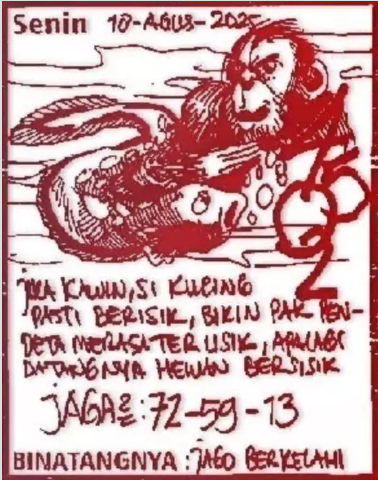 Senin 18-AGUS-2025
JIKA KAWIN, SI KUCING
PASTI BERISIK, BIKIN PAK PEN-
DETA MERASA TERUSIK, APALAGI
DATANGNYA HEWAN BERSISIK
JAGA2: 72-59-13
BINATANGNYA : JAGO BERKELAHI